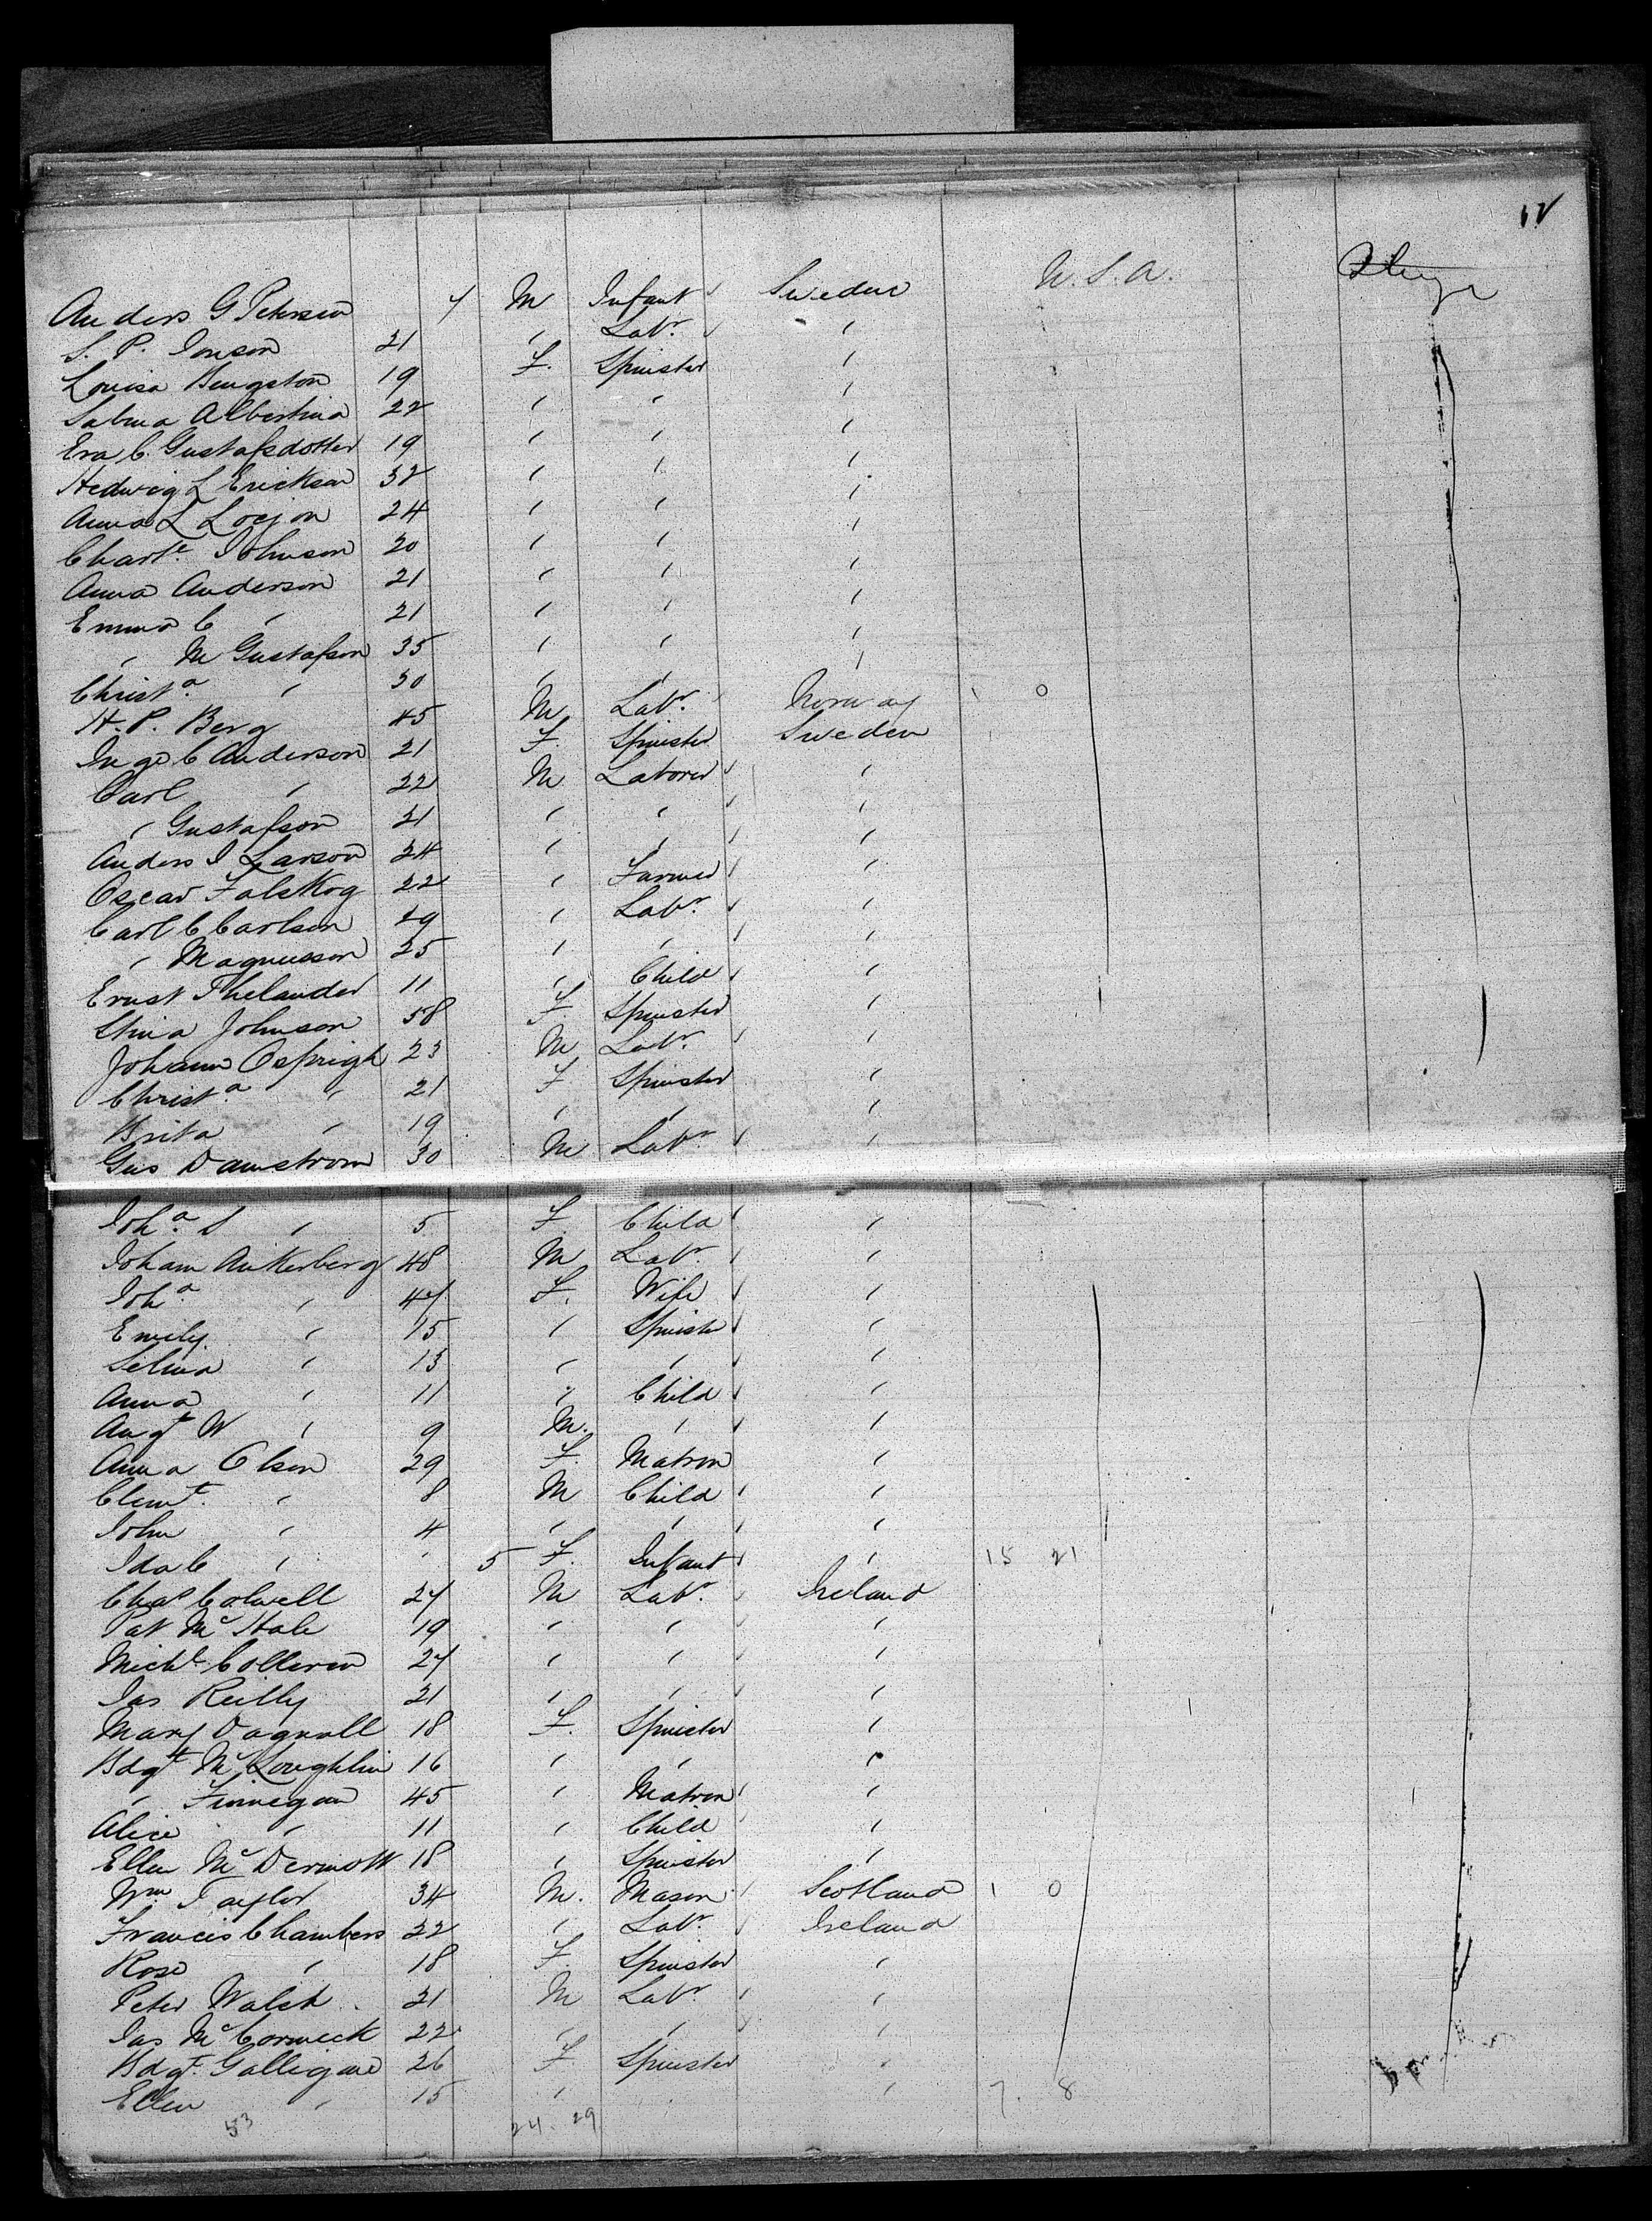 Anders G Peterson 7 M Infant Sweden U.S.A.
S. P. Jonson 21 " Labr. "
Louisa Bengston 19 F. Spinster "
Salma Albertina 22 " " "
Eva C. Gustafsdotter 19 " " "
Hedwig L Erickson 32 " " "
Anna L 24 " " "
Charte. Johnson 20 " " "
Anna Anderson 21 " " "
Emma C " 21 " " "
" M Gustafson 35 " " "
Christa. " 30 " " "
H. P. Berg 45 M Labr. Norway 1 0
Inga C Anderson 21 F. Spinster Sweden
Carl " 22 M Laborer "
" Gustafson 21 " " "
Anders J Larson 24 " " "
Oscar Falskog 22 " Farmer "
Carl C Carlson 29 " Labr. "
" Magnusson 25 " " "
Ernst Thelander 11 " Child "
Stina Johnson 58 F. Spinster "
Johann 23 M Labr. "
Christa " 21 F Spinster "
Brita " 19 " " "
Gus Damstrom 30 M Labr "
Joha. S " 5 F Child "
Joham Ankerberg 48 M Labr. "
Joha. " 47 F. Wife "
Emily " 15 " Spinster "
Selma " 13 " " "
Anna " 11 " Child "
Augt W " 9 M. " "
Anna Olson 29 F. Matron "
Clemt. " 8 M Child "
John " 4 " " "
Ida C " " 5 F. Infant " 15 21
Chas Colwell 27 M Labr. Ireland
Pat McHale 19 " " "
Michl. Colleran 27 " " "
Jas Reilly 21 " " "
Mary Dagnall 18 F. Spinster "
Bdgt McLoughlin 16 " " "
" Finnegan 45 " Matron "
Alice " 11 " Child "
Ellen McDermott 18 " Spinster "
Wm. Taylor 34 M. Mason Scotland 1 0
Francis Chambers 22 " Labr. Ireland
Rose " 18 F. Spinster "
Peter Walsh 21 M Labr. "
Jas McCormick 22 " " "
Bdgt. Galligan 26 F Spinster "
Ellen " 15 " " 7. 8
53 24. 29